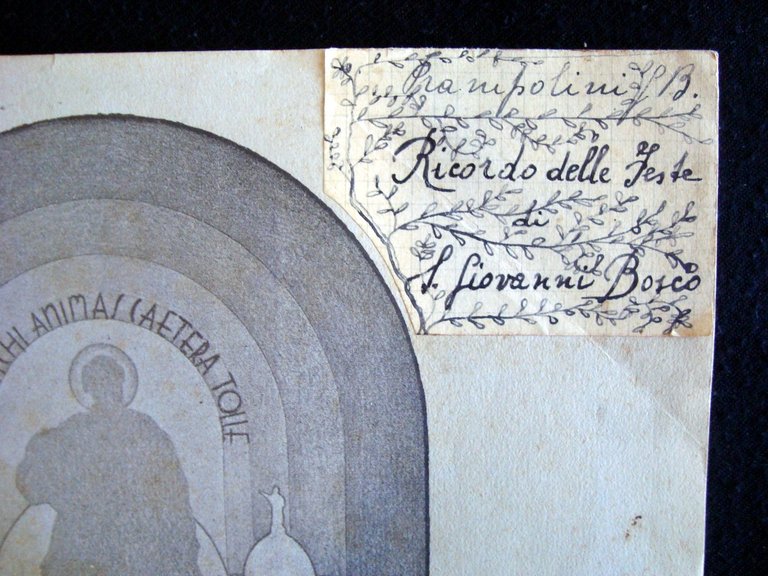 Prampolini G. B.
Ricordo delle Feste
di
S. Giovanni Bosco
CHI ANIMAS CAETERA TOLLE